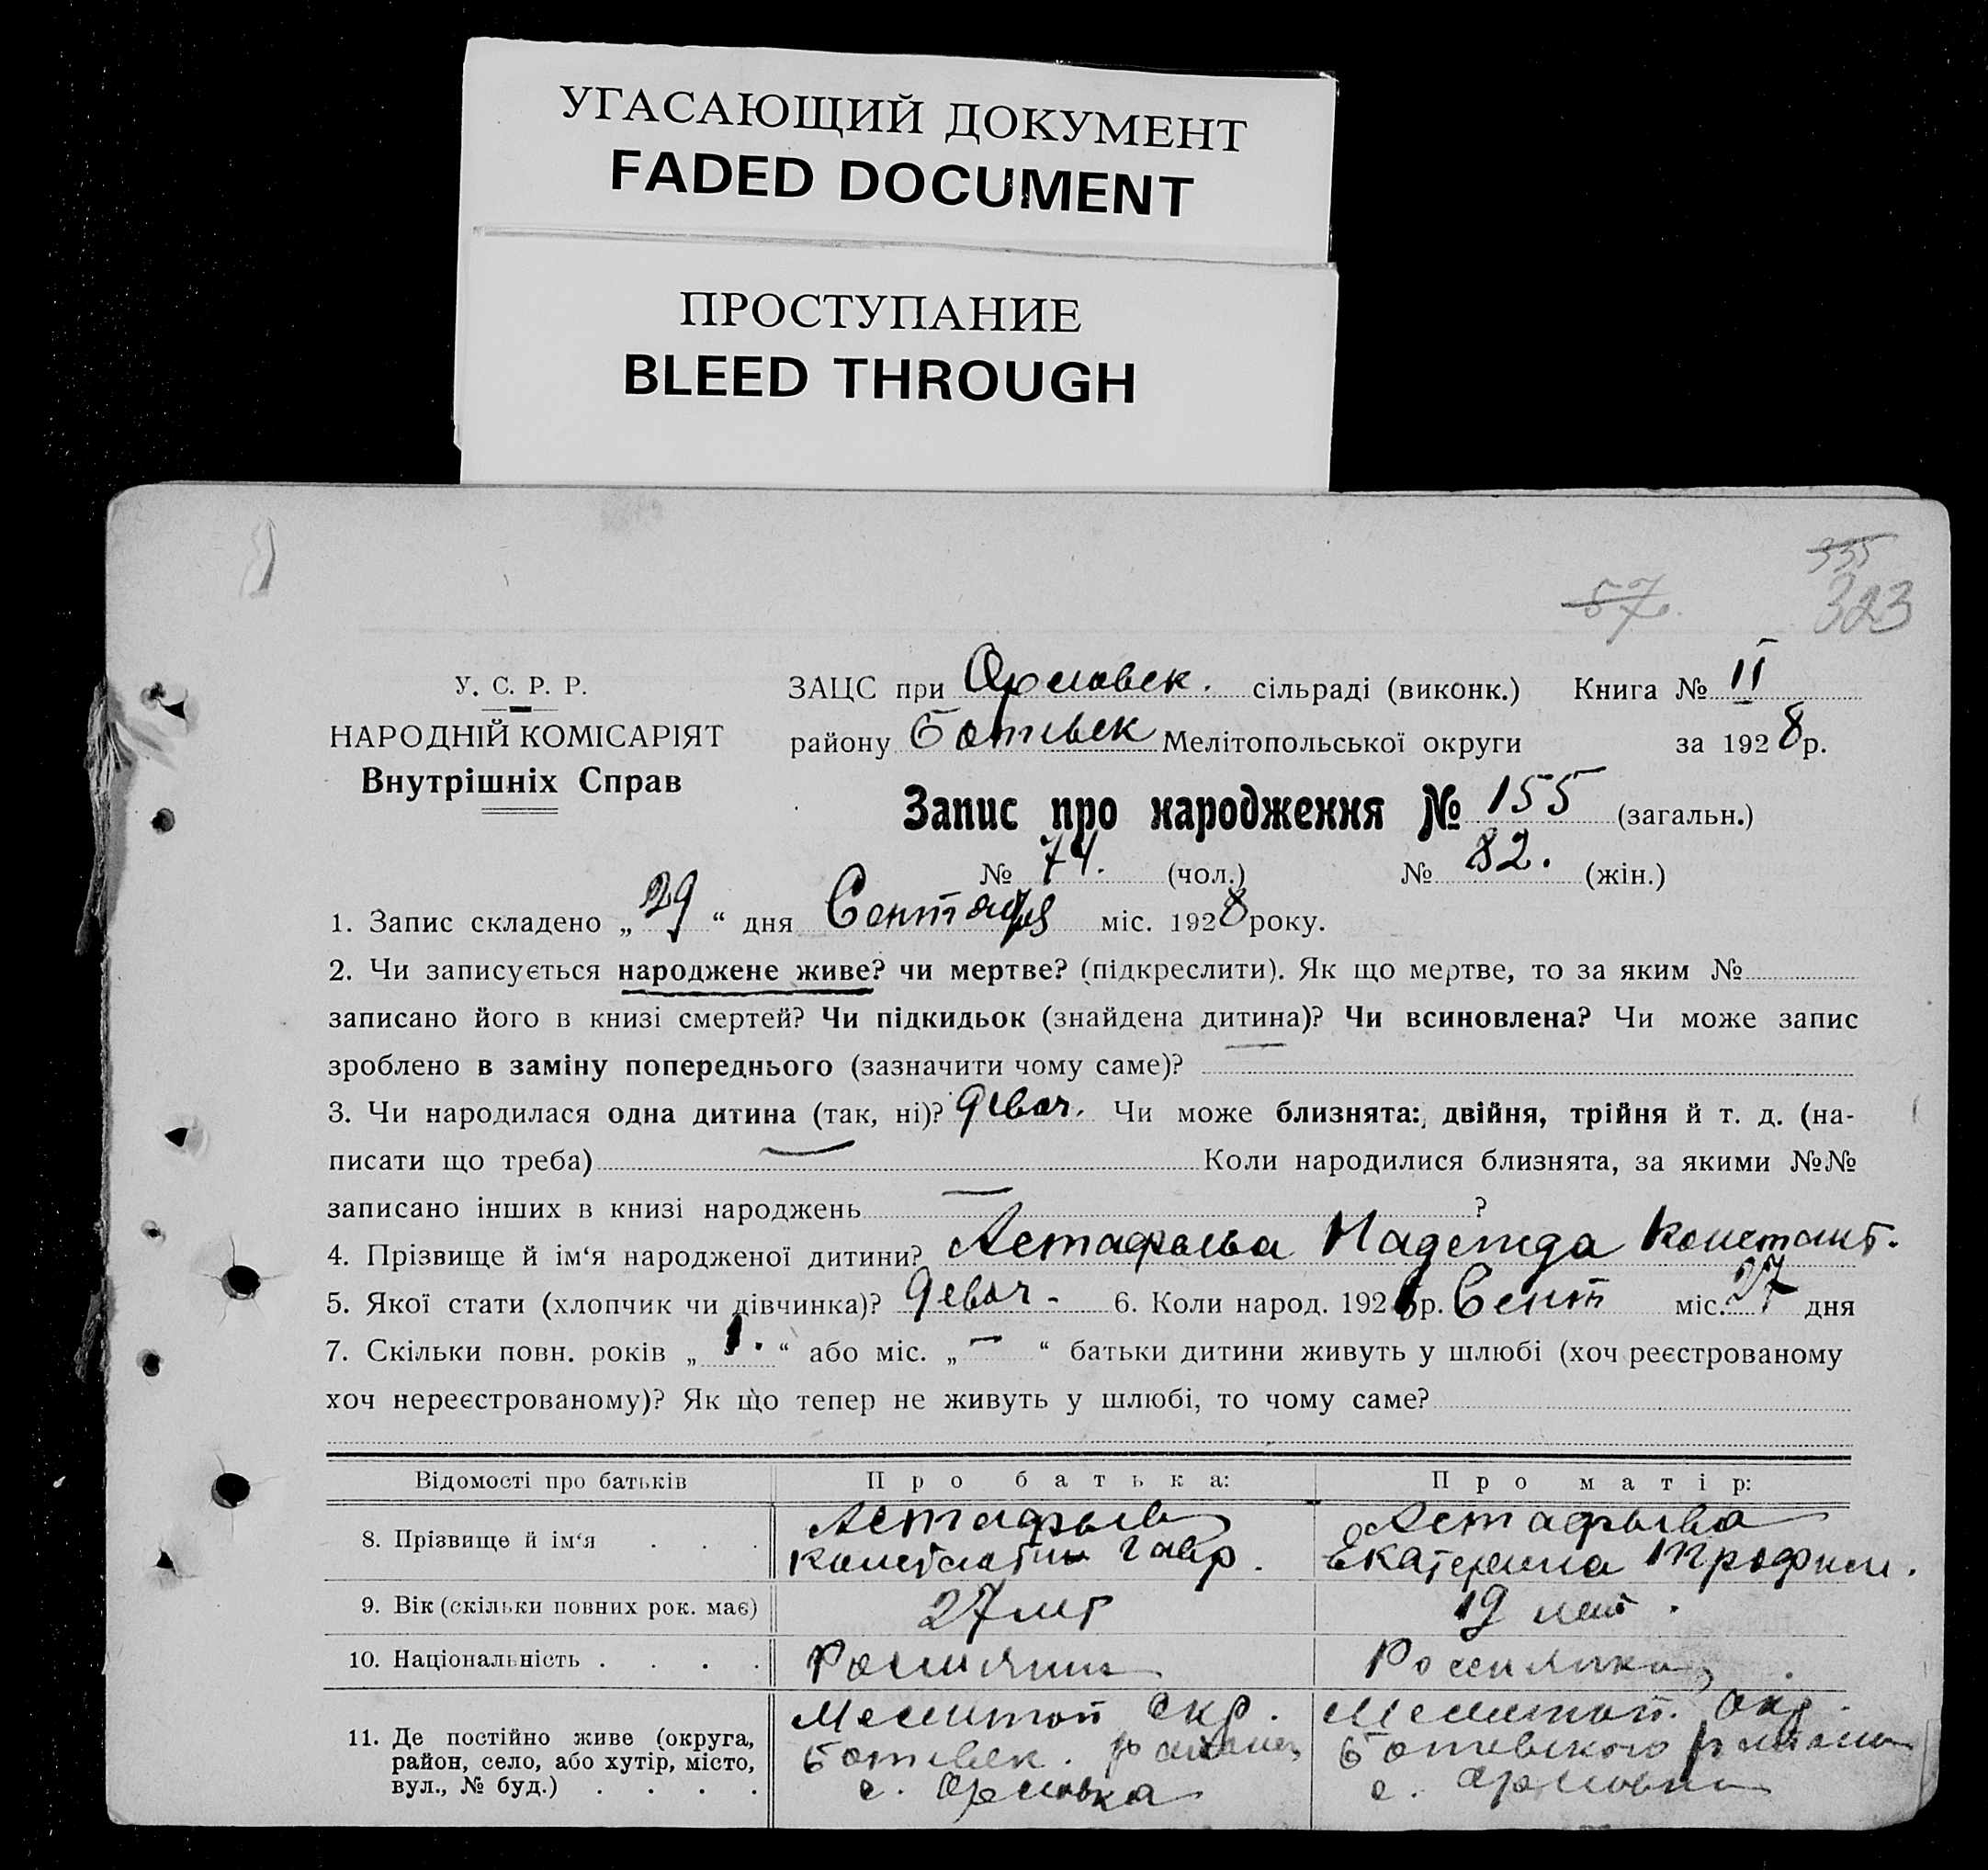 УГАСАЮЩИЙ ДОКУМЕНТ
FADED DOCUMENT
ПРОСТУПАНИЕ
BLEED THROUGH
335
57 323
У. С. Р. Р.
НАРОДНІЙ КОМІСАРІЯТ
Внутрішніх Справ
ЗАЦС при Орловск. сільраді (виконк.) Книга № II
району Ботьевск Мелітопольської округи за 1928 р.
Запис про народження № 155 (загальн.)
№ 74. (чол.) № 82. (жін.)
1. Запис складено „ 29 “ дня Сентября міс. 1928 року.
2. Чи записується народжене живе? чи мертве? (підкреслити). Як що мертве, то за яким №
записано його в книзі смертей? Чи підкидьок (знайдена дитина)? Чи всиновлена? Чи може запис
зроблено в заміну попереднього (зазначити чому саме)?
3. Чи народилася одна дитина (так, ні)? девоч. Чи може близнята: двійня, трійня й т. д. (на-
писати що треба) Коли народилися близнята, за якими №№
записано інших в книзі народжень ?
4. Прізвище й ім‘я народженої дитини? Астафьева Надежда Констант.
5. Якої стати (хлопчик чи дівчинка)? девоч. 6. Коли народ. 1928 р. Сент міс. 27 дня
7. Скільки повн. років „ 1. “ або міс. „ — “ батьки дитини живуть у шлюбі (хоч реєстрованому
хоч нереєстрованому)? Як що тепер не живуть у шлюбі, то чому саме?
Відомості про батьків Про батька: Про матір:
8. Прізвище й ім‘я . . . Астафьев Константин Гавр. Астафьева Екатерина Трофим.
9. Вік (скільки повних рок. має) 27 лет 19 лет.
10. Національність . . . . Россиянин Россиянка
11. Де постійно живе (округа, Мелитоп окр. Мелитоп. окр.
район, село, або хутір, місто, Ботьевск. района Ботьевского района
вул., № буд.) . . . . с. Орловка с. Орловка